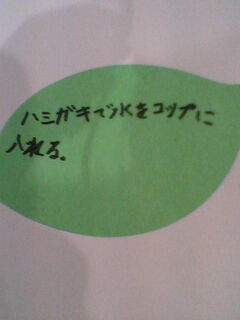 ハミガキで水をコップに
入れる。